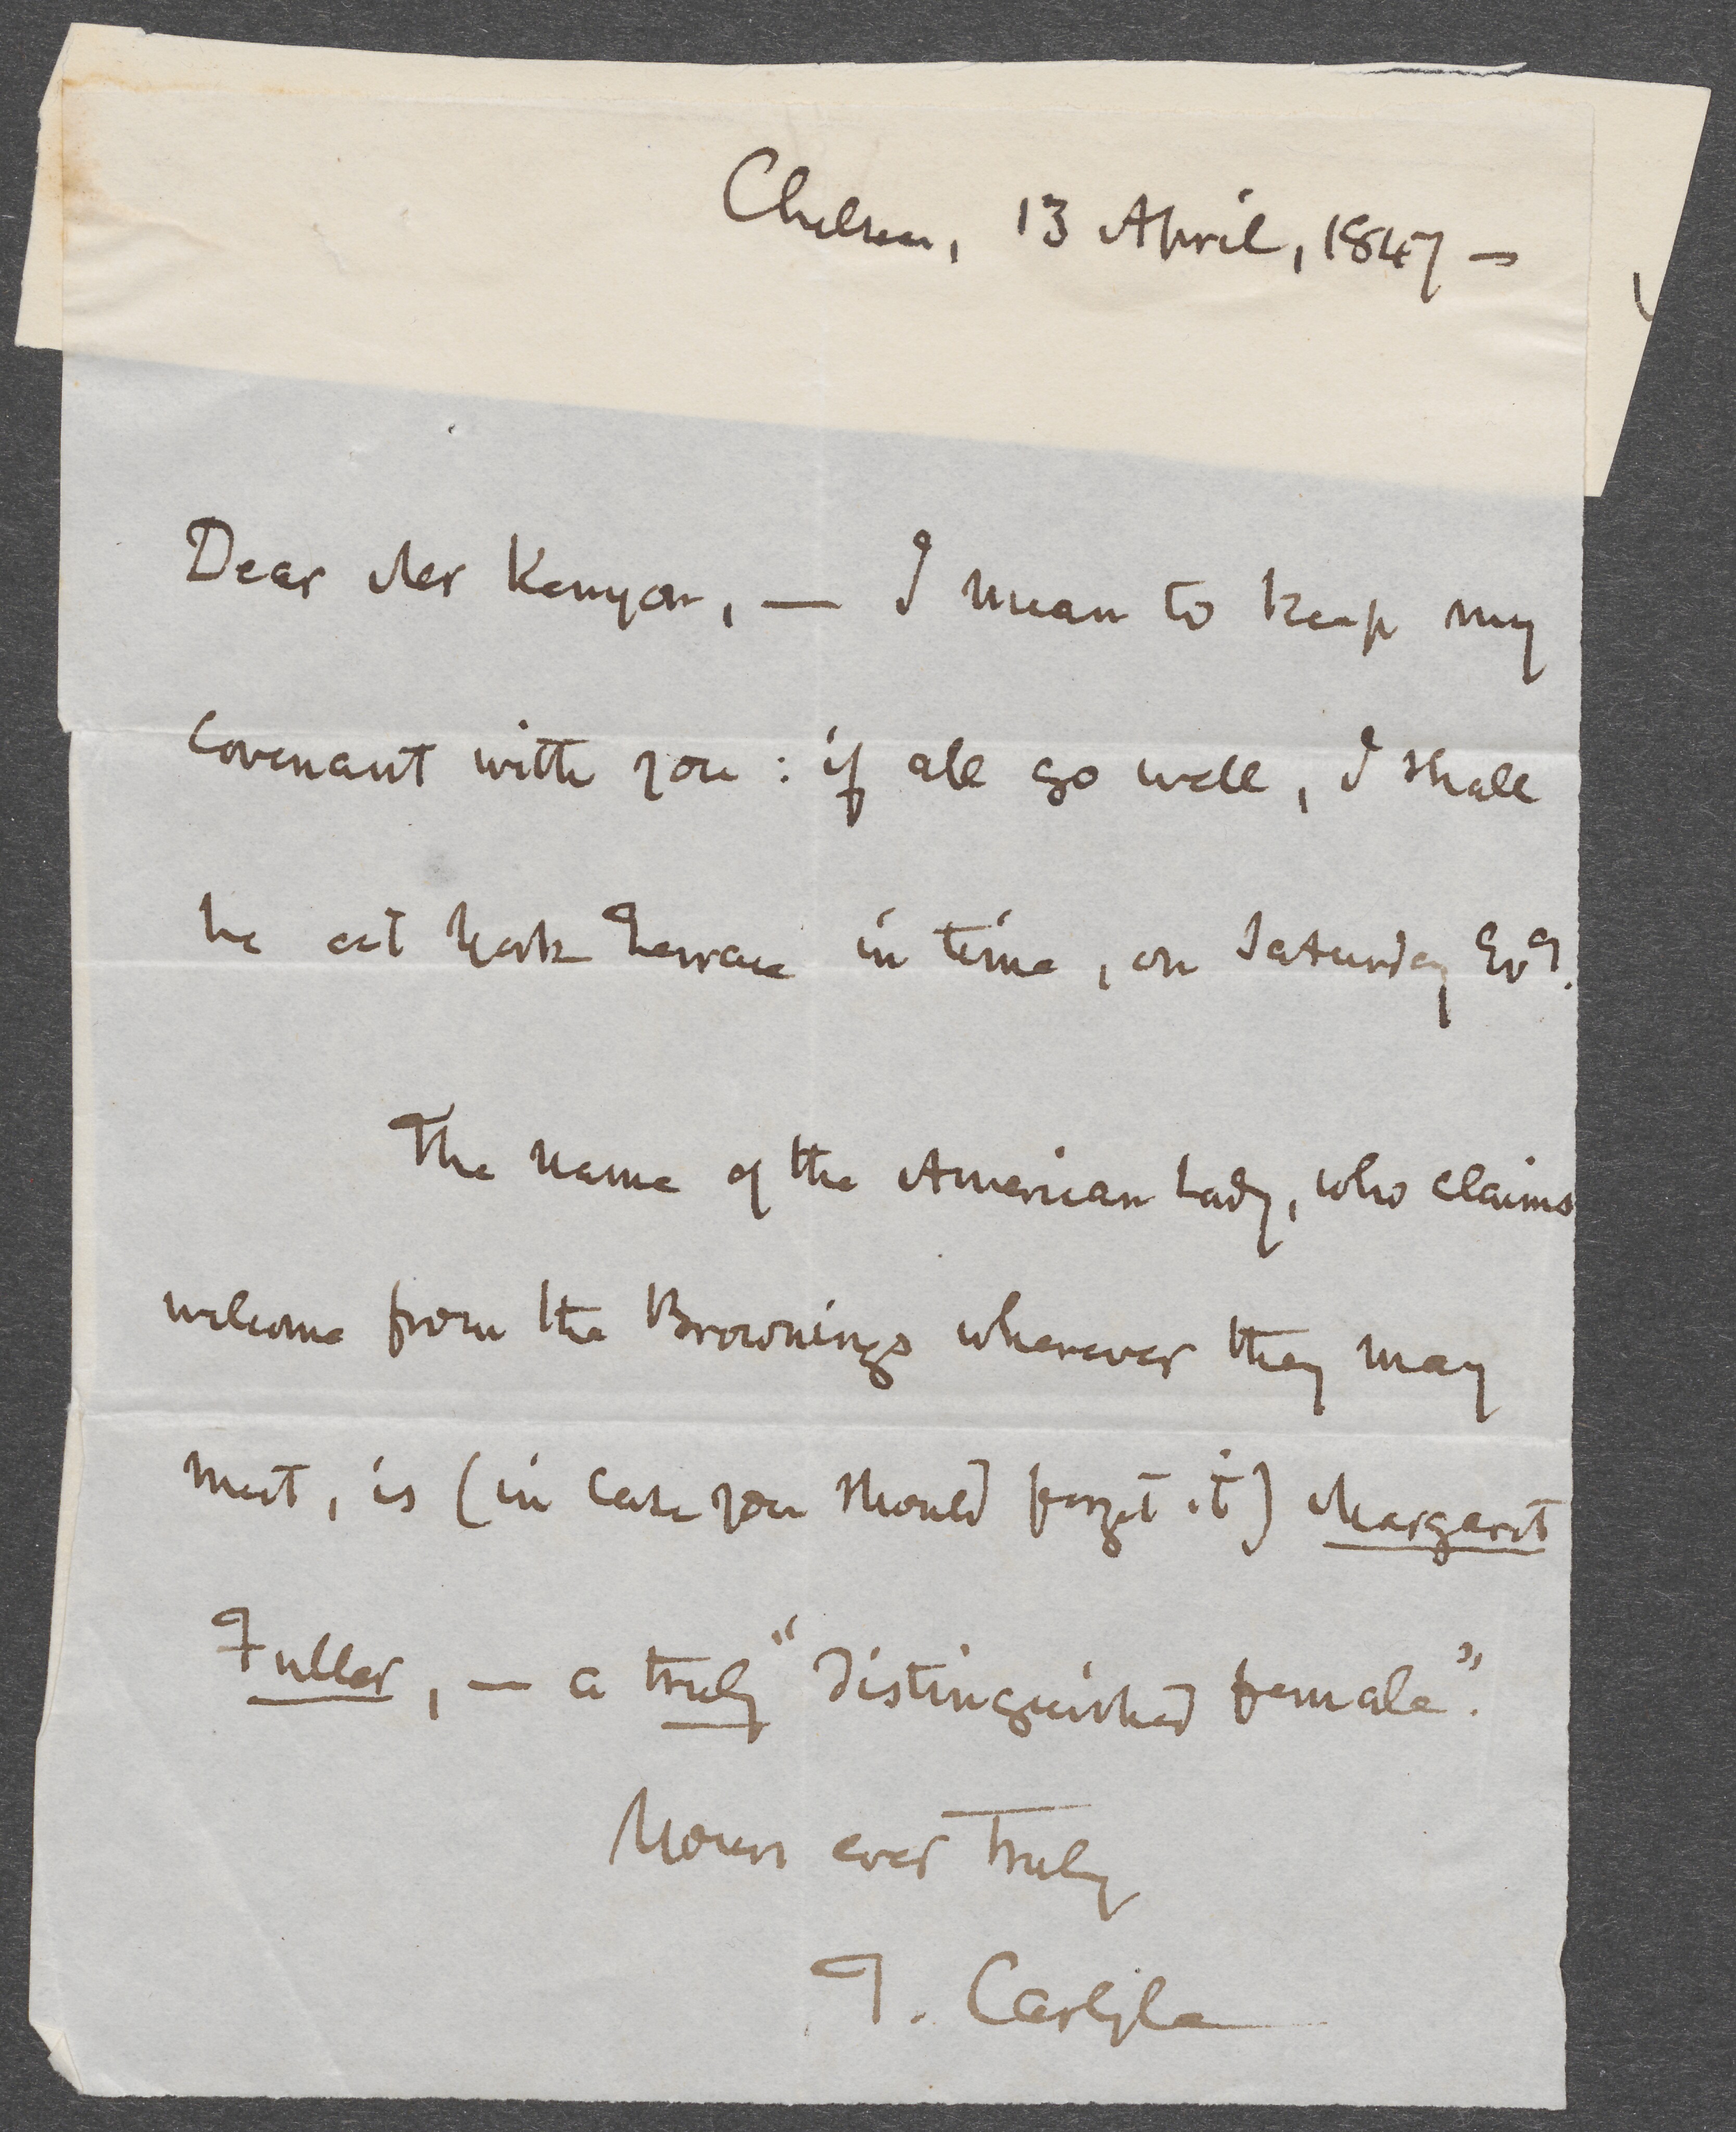 Chelsea, 13 April, 1847 —
Dear Mr Kenyon, — I mean to keep my
covenant with you: if all go well, I shall
be at York Terrace in time, on Saturday Evg.
The name of the American Lady, who claims
welcome from the Brownings wherever they may
meet, is (in case you should forget it) Margaret
Fuller, — a truly "distinguished female".
Yours ever truly
T. Carlyle